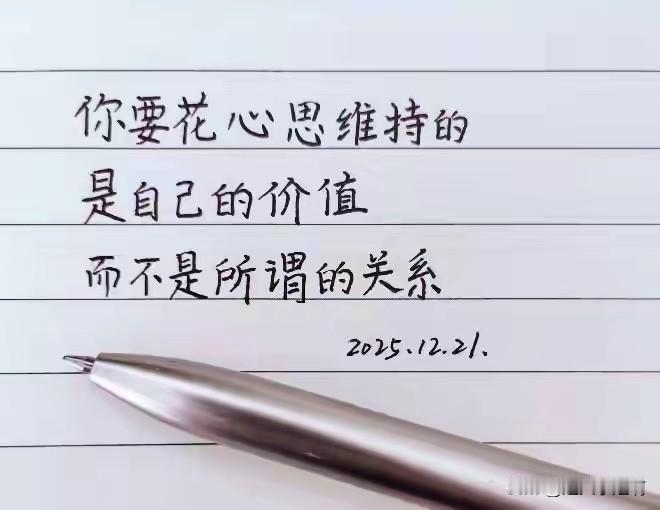 你要花心思维持的
是自己的价值
而不是所谓的关系
2025.12.21.